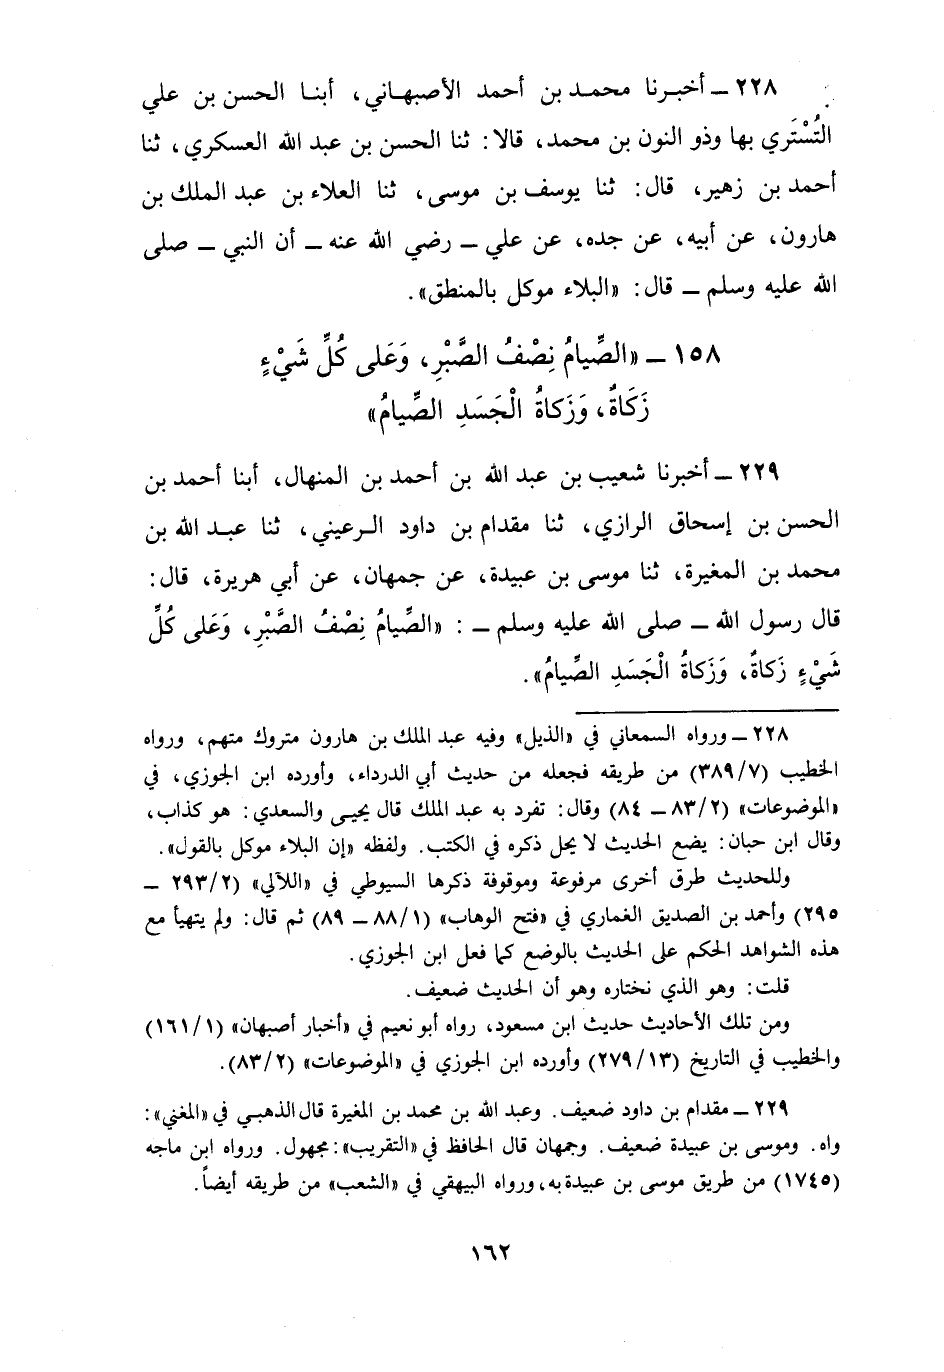 ٢٢٨ ــ أخبرنا محمد بن أحمد الأصبهاني، أبنا الحسن بن علي
التُسْتَري بها وذو النون بن محمد، قالا: ثنا الحسن بن عبد الله العسكري، ثنا
أحمد بن زهير، قال: ثنا يوسف بن موسى، ثنا العلاء بن عبد الملك بن
هارون، عن أبيه، عن جده، عن علي ــ رضي الله عنه ــ أن النبي ــ صلى
الله عليه وسلم ــ قال: «البلاء موكل بالمنطق».
١٥٨ ــ «الصِّيامُ نِصْفُ الصَّبْرِ، وَعَلى كُلِّ شَيْءٍ
زَكَاةٌ، وَزَكاةُ الْجَسَدِ الصِّيامُ»
٢٢٩ ــ أخبرنا شعيب بن عبد الله بن أحمد بن المنهال، أبنا أحمد بن
الحسن بن إسحاق الرازي، ثنا مقدام بن داود الرعيني، ثنا عبد الله بن
محمد بن المغيرة، ثنا موسى بن عبيدة، عن جمهان، عن أبي هريرة، قال:
قال رسول الله ــ صلى الله عليه وسلم ــ : «الصِّيامُ نِصْفُ الصَّبْرِ، وَعَلى كُلِّ
شَيْءٍ زَكاةٌ، وَزَكاةُ الْجَسَدِ الصِّيامُ».
٢٢٨ ــ ورواه السمعاني في «الذيل» وفيه عبد الملك بن هارون متروك متهم، ورواه
الخطيب (٣٨٩/٧) من طريقه فجعله من حديث أبي الدرداء، وأورده ابن الجوزي، في
«الموضوعات» (٨٣/٢ ــ ٨٤) وقال: تفرد به عبد الملك قال يحيى والسعدي: هو كذاب،
وقال ابن حبان: يضع الحديث لا يحل ذكره في الكتب. ولفظه «إن البلاء موكل بالقول».
وللحديث طرق أخرى مرفوعة وموقوفة ذكرها السيوطي في «اللآلي» (٢٩٣/٢ ــ
٢٩٥) وأحمد بن الصديق الغماري في «فتح الوهاب» (٨٨/١ ــ ٨٩) ثم قال: ولم يتهيأ مع
هذه الشواهد الحكم على الحديث بالوضع كما فعل ابن الجوزي.
قلت: وهو الذي نختاره وهو أن الحديث ضعيف.
ومن تلك الأحاديث حديث ابن مسعود، رواه أبو نعيم في «أخبار أصبهان» (١٦١/١)
والخطيب في التاريخ (٢٧٩/١٣) وأورده ابن الجوزي في «الموضوعات» (٨٣/٢).
٢٢٩ ــ مقدام بن داود ضعيف. وعبد الله بن محمد بن المغيرة قال الذهبي في «المغني»:
واه. وموسى بن عبيدة ضعيف. وجمهان قال الحافظ في «التقريب»: مجهول. ورواه ابن ماجه
(١٧٤٥) من طريق موسى بن عبيدة به، ورواه البيهقي في «الشعب» من طريقه أيضاً.
١٦٢